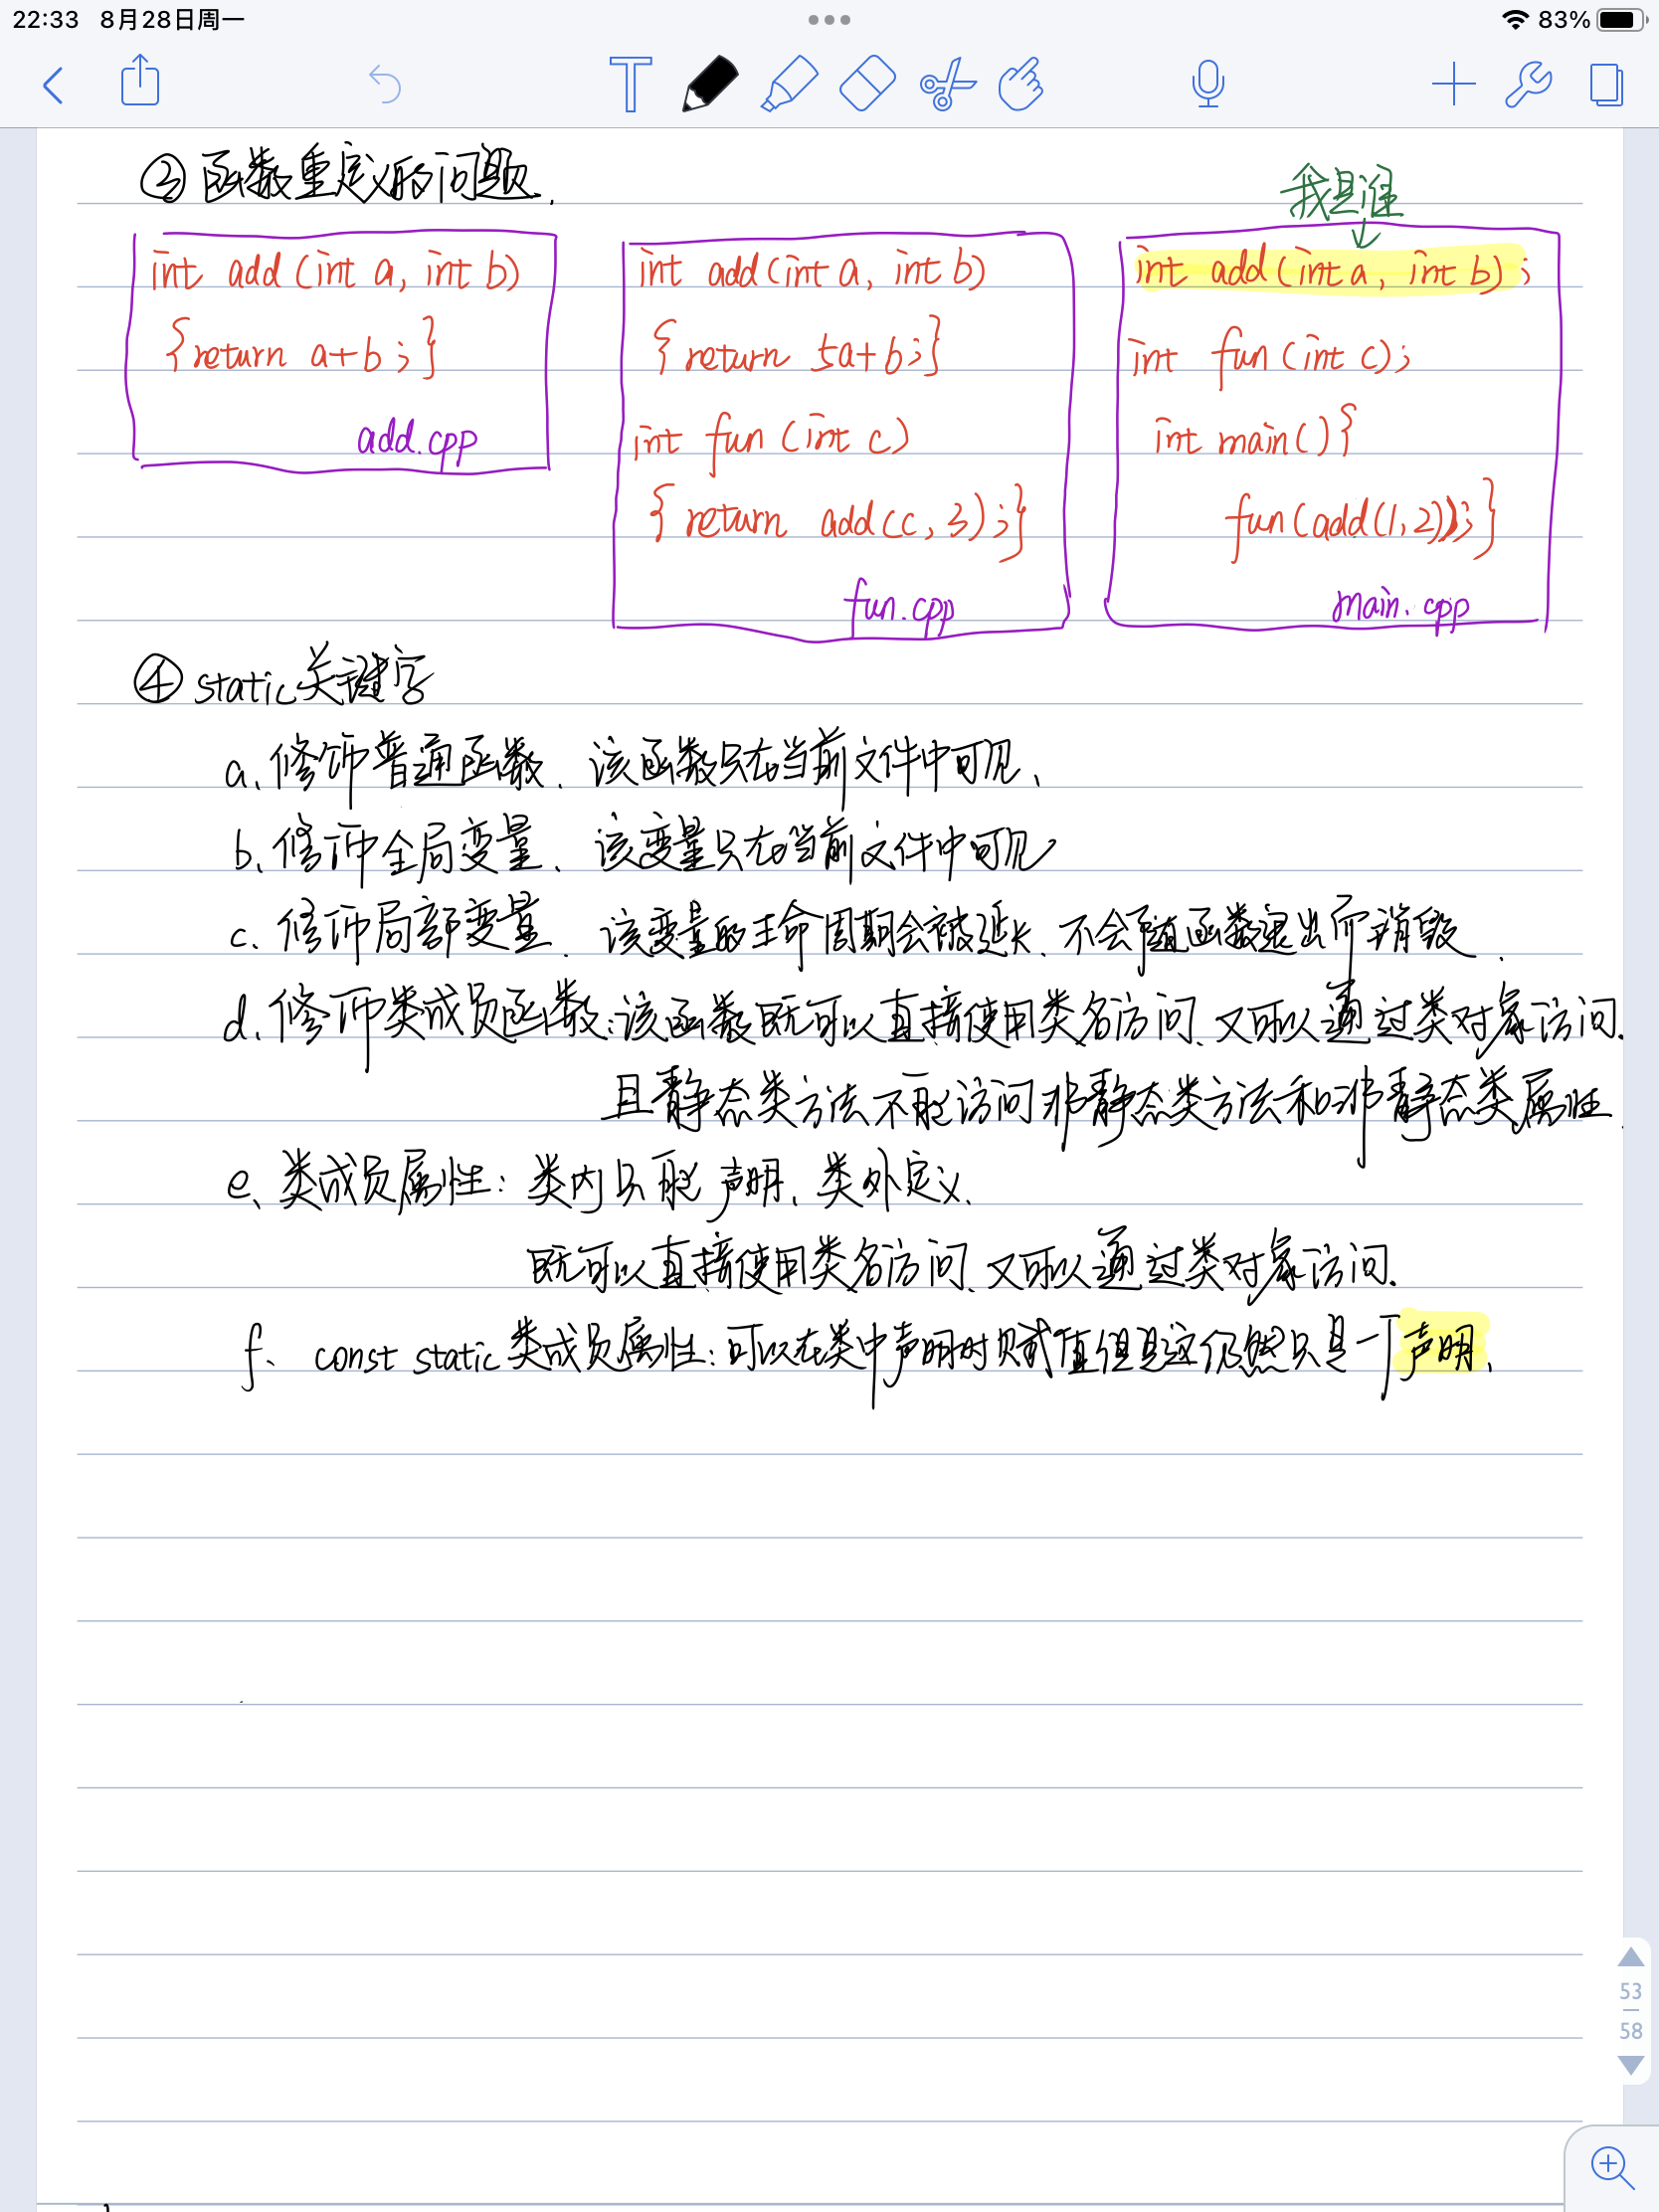 22:33 8月28日周一 83%
③ 函数重定义的问题.
我是谁
int add (int a, int b)
{return a+b ;}
add.cpp
int add(int a, int b)
{ return 5a+b;}
int fun (int c)
{ return add(c, 3);}
fun.cpp
int add (int a, int b) ;
int fun (int c);
int main() {
fun(add(1,2));}
main.cpp
④ static关键字
a、修饰普通函数、该函数只在当前文件中可见、
b、修饰全局变量、该变量只在当前文件中可见
c、修饰局部变量、该变量的生命周期会被延长、不会随函数退出而销毁、
d、修饰类成员函数:该函数既可以直接使用类名访问、又可以通过类对象访问.
且静态类方法不能访问非静态类方法和非静态类属性.
e、类成员属性: 类内只能声明、类外定义、
既可以直接使用类名访问、又可以通过类对象访问.
f、const static 类成员属性:可以在类中声明时赋值但是这仍然只是一个声明、
53
58